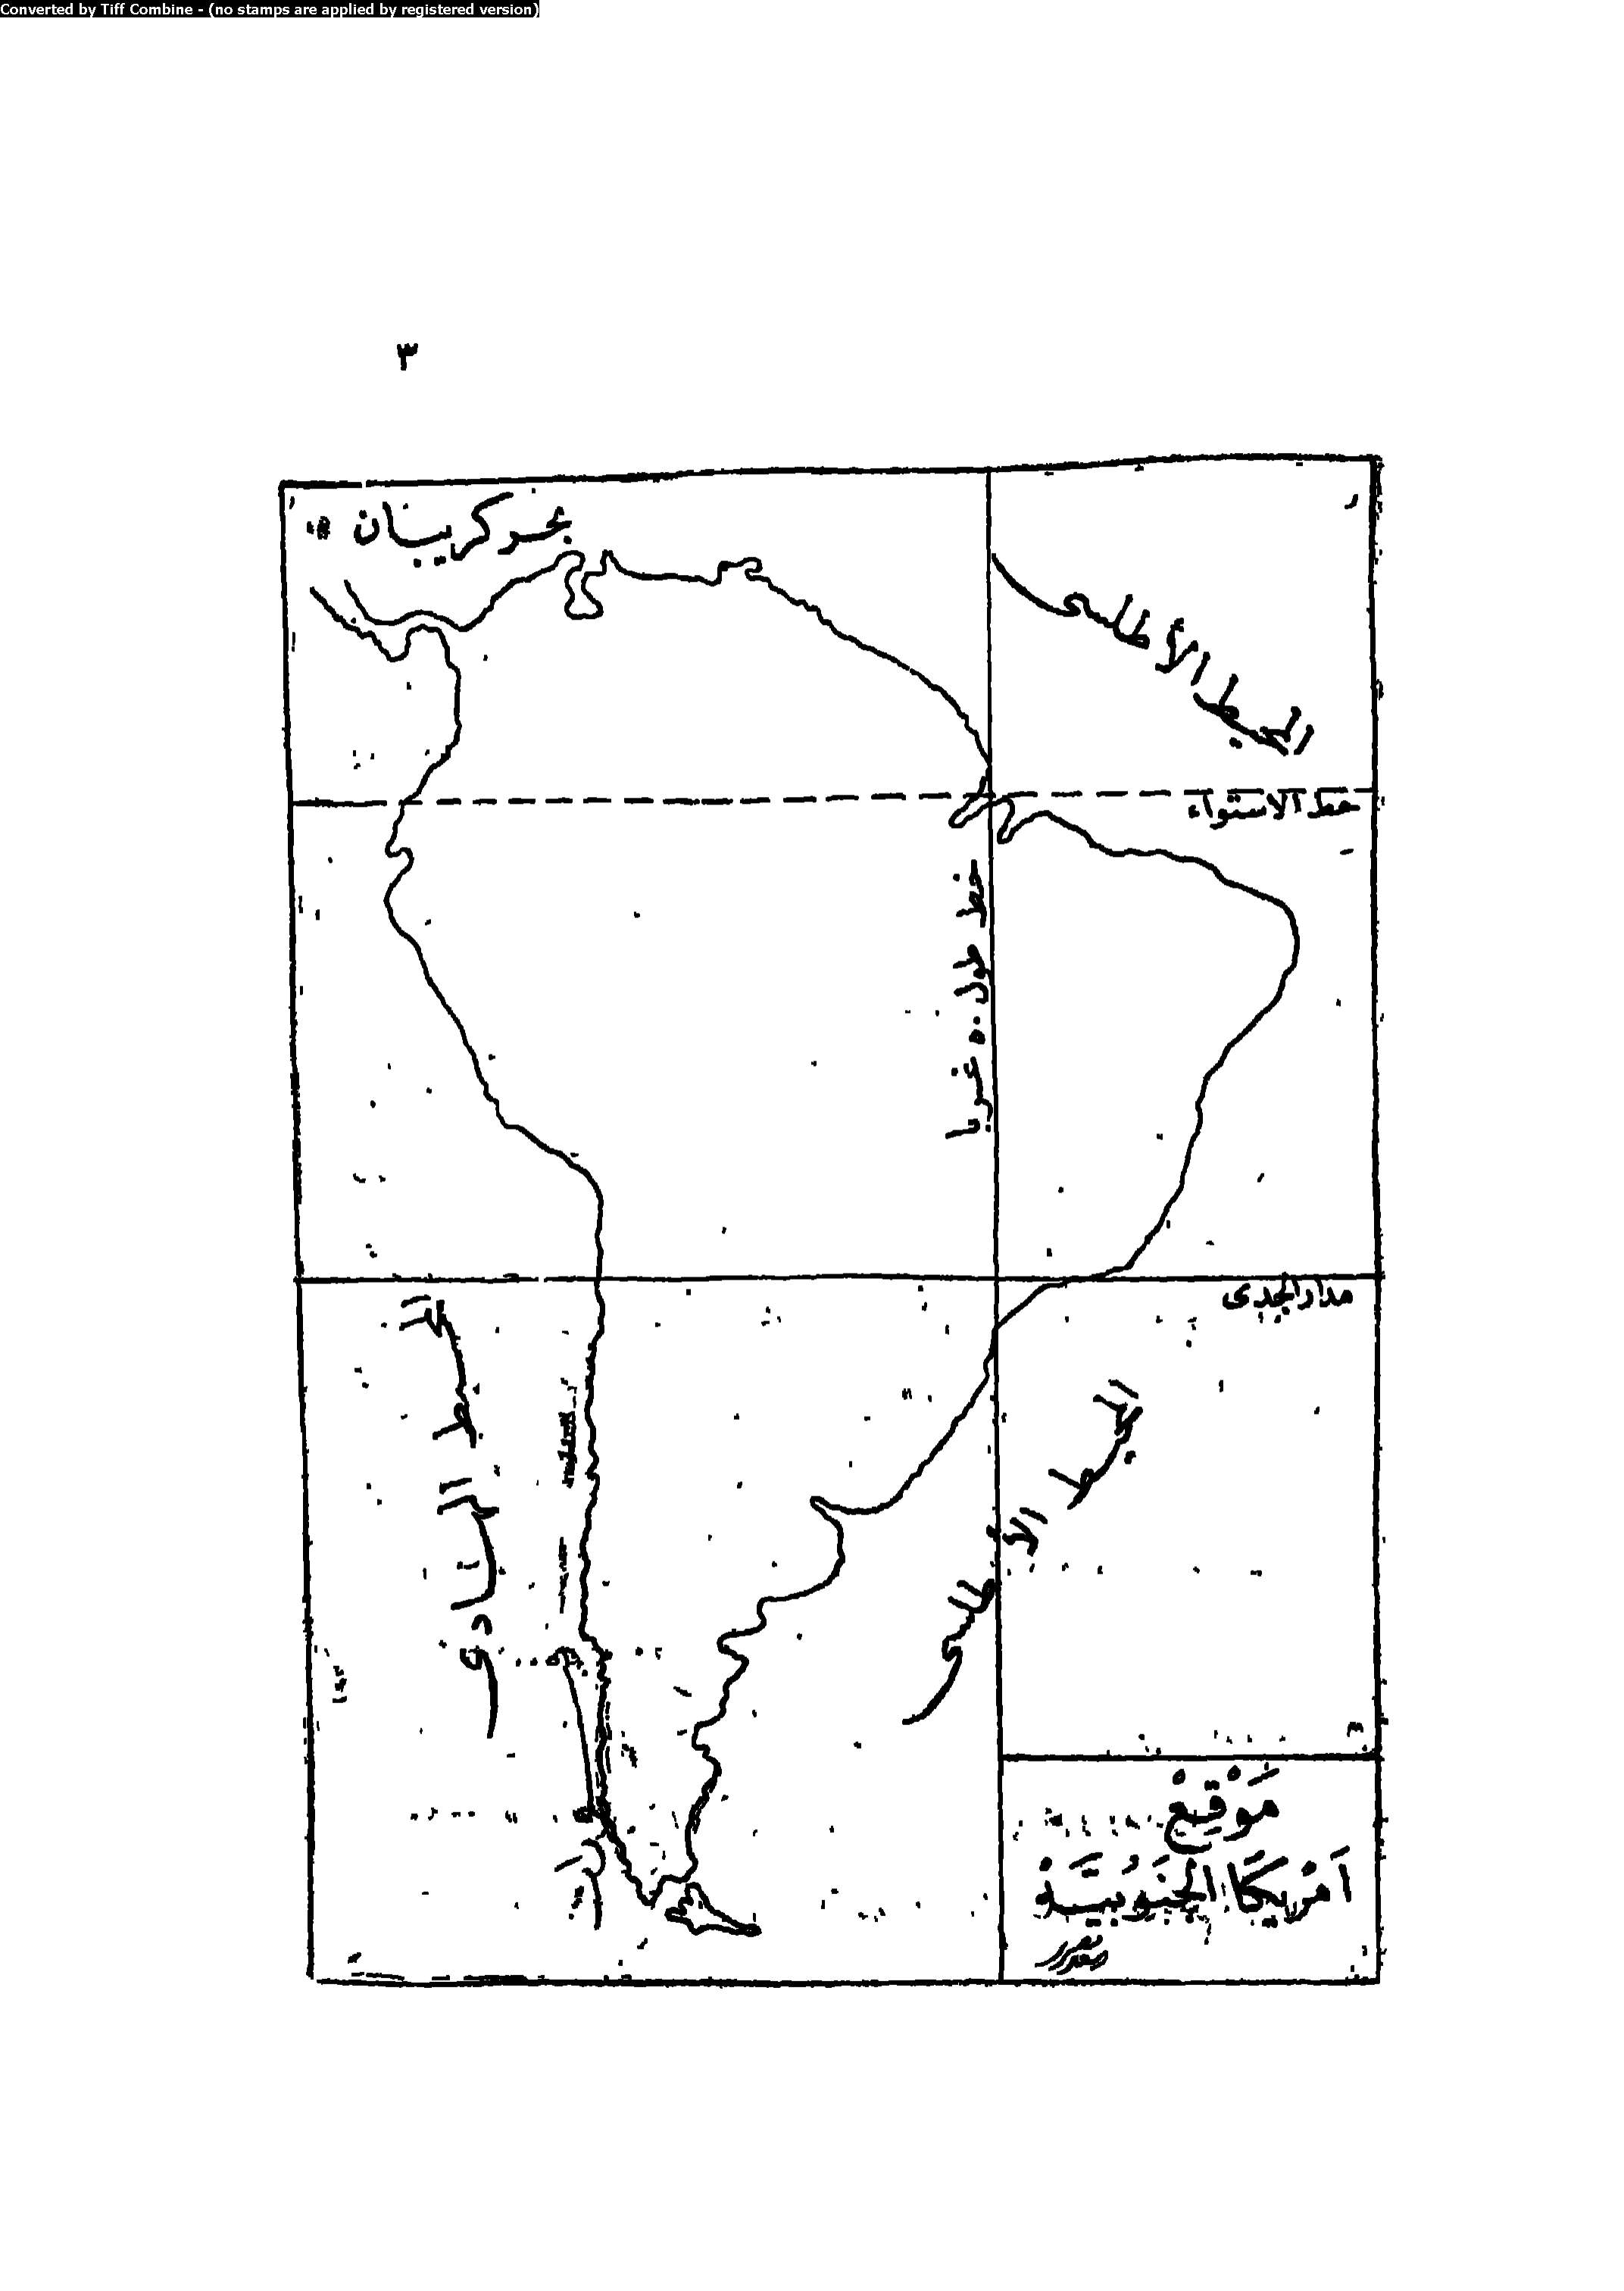 Converted by Tiff Combine - (no stamps are applied by registered version)
٣
بحر كريبيان
المحيط الأطلسى
خط الاستواء
خط طول ٥٠ غربا
مدار الجدى
المحيط الهادى
المحيط الأطلسى
مَوْقِعْ
اَمْرِيكَا الجَنُوبيَّةْ